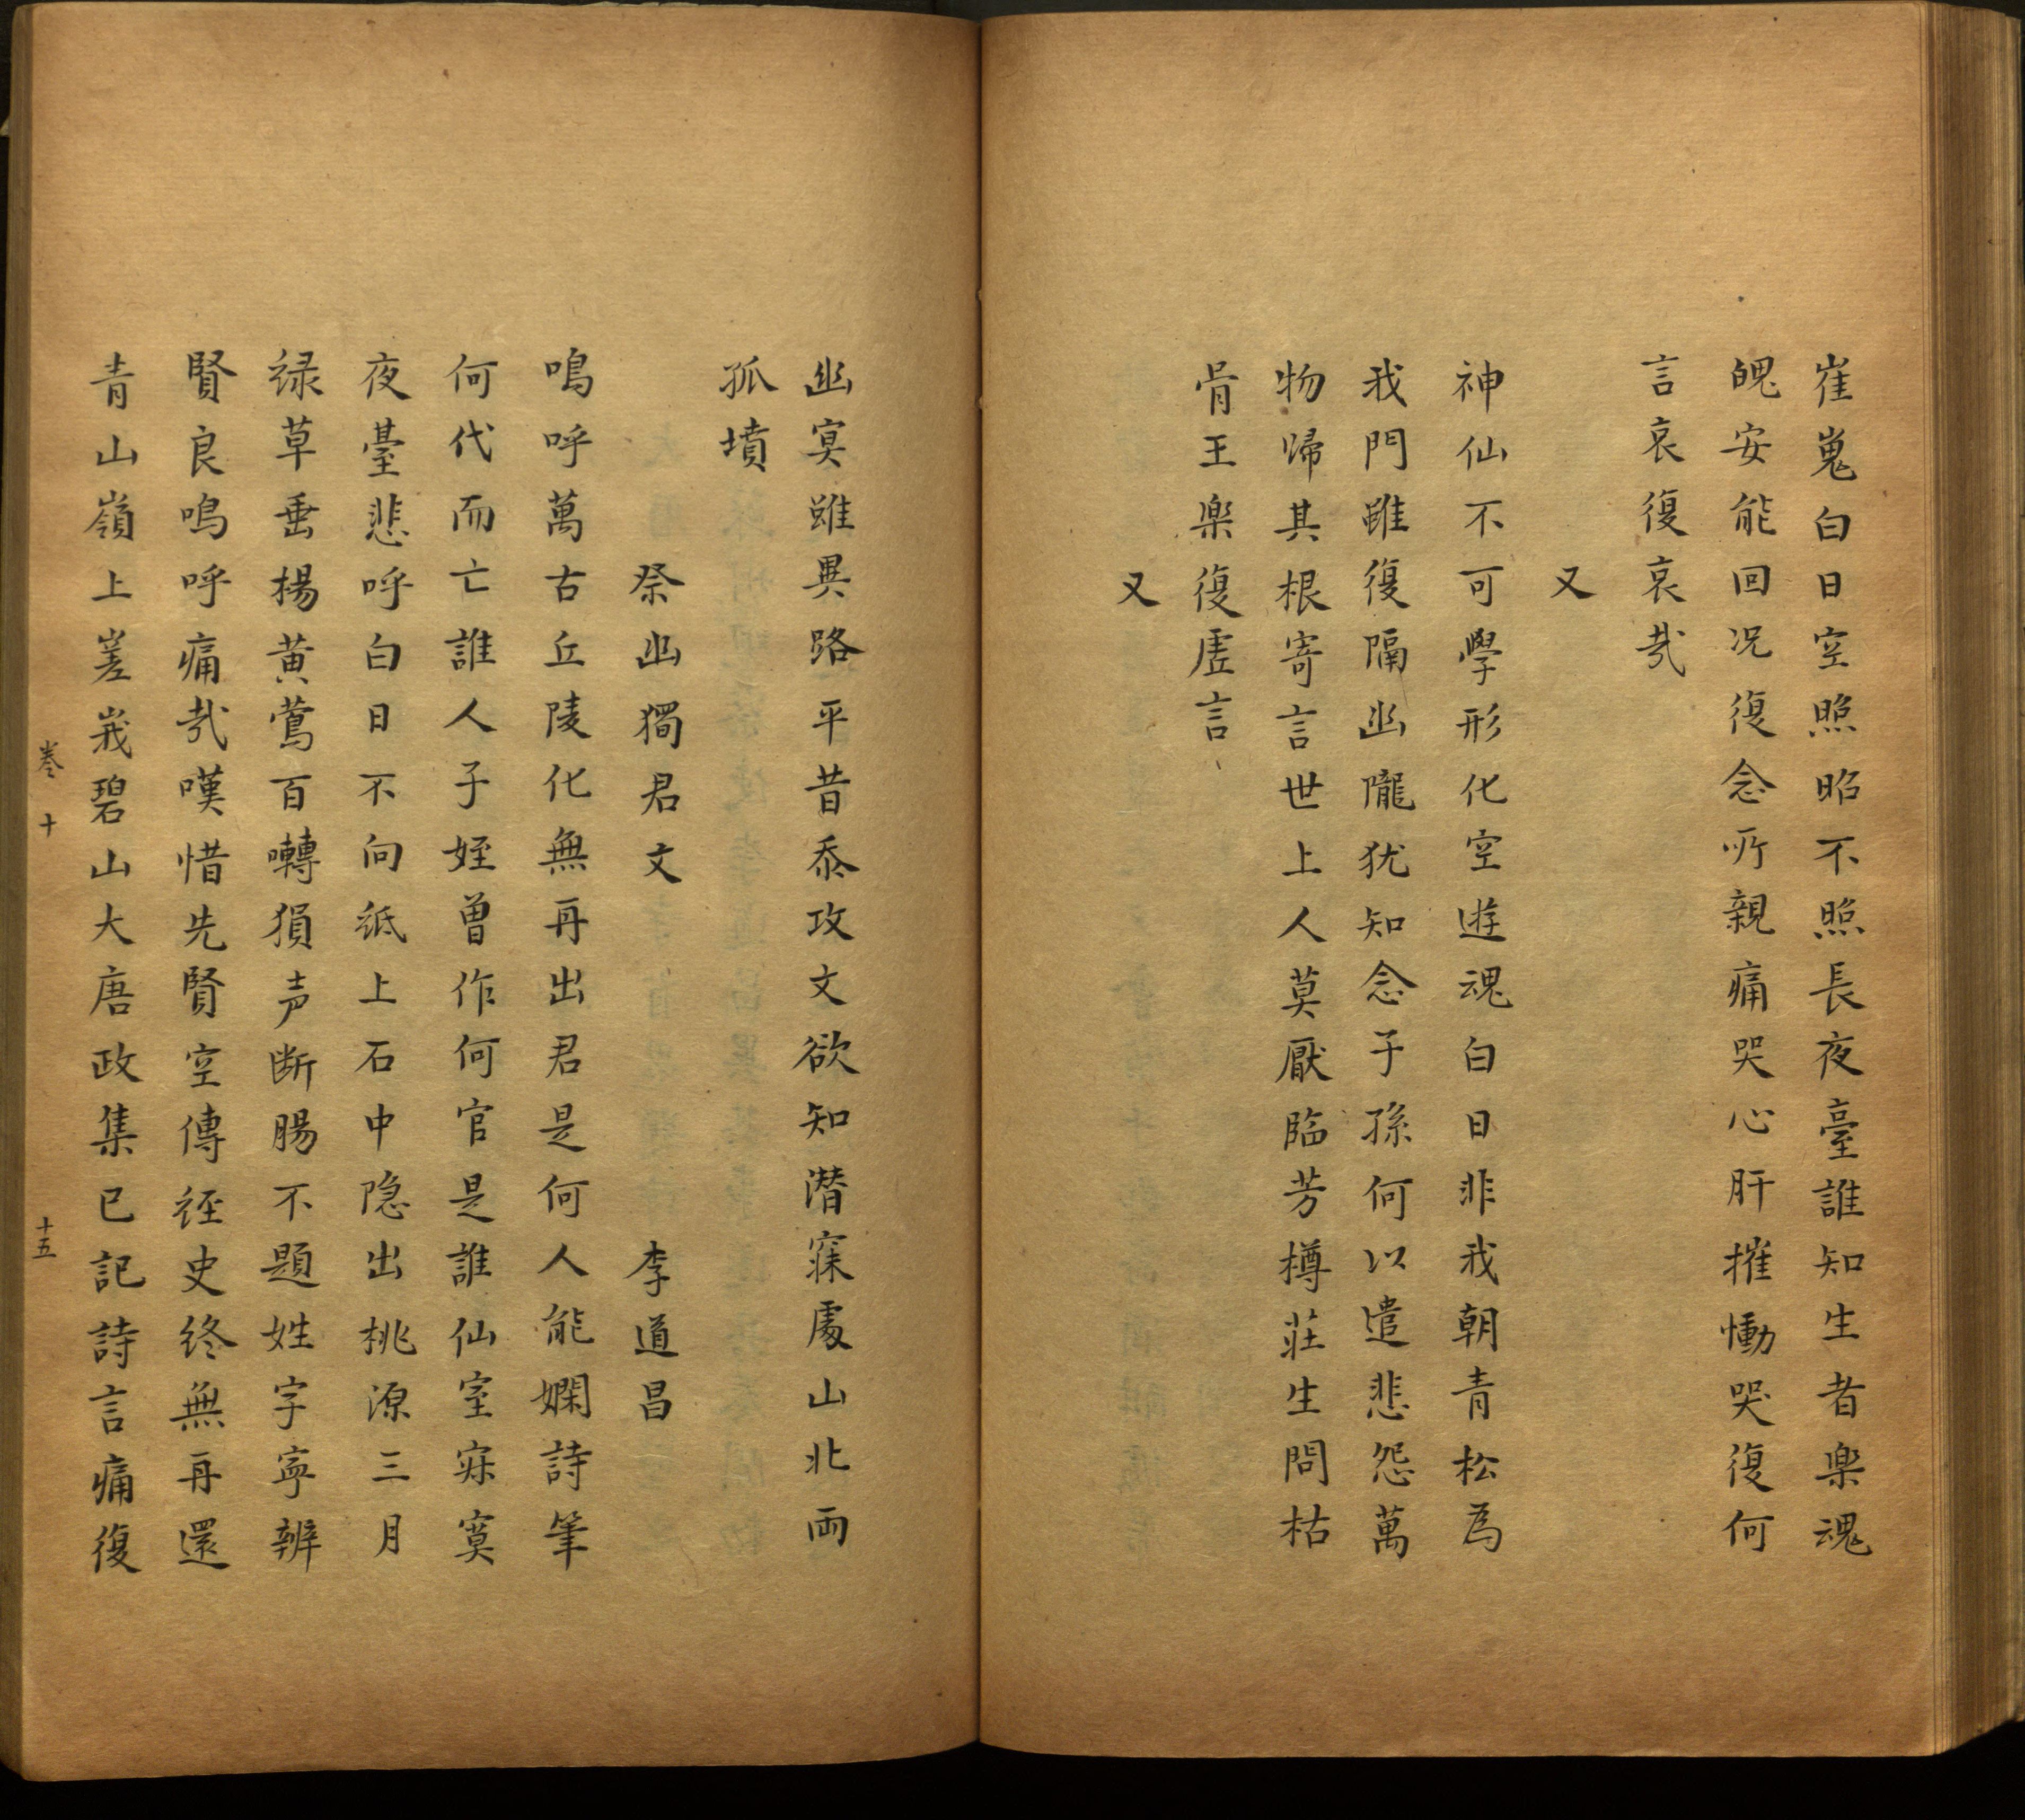 崔嵬白日空照昭不照長夜臺誰知生者楽魂
魄安能回况復念所親痛哭心肝摧慟哭復何
言哀復哀哉
又
神仙不可學形化空遊魂白日非我朝青松為
我門雖復隔幽隴犹知念子孫何以遣悲怨萬
物歸其根寄言世上人莫厭臨芳樽莊生問枯
骨王楽復虗言
又
幽寞雖異路平昔忝攻文欲知潜寐處山北両
孤墳
祭幽獨君文 李道昌
嗚呼萬古丘陵化無再出君是何人能嫻詩筆
何代而亡誰人子姪曾作何官是誰仙室寂寞
夜臺悲呼白日不向紙上石中隐出桃源三月
緑草垂楊黄鶯百囀猿声断腸不題姓字寧辨
賢良嗚呼痛哉嘆惜先賢空傳経史終無再還
青山嶺上嵳峩碧山大唐政集已記詩言痛復
卷十 十五